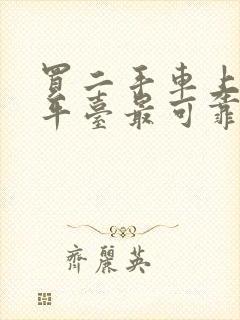 買二手車上
平臺最可靠
齊麗英